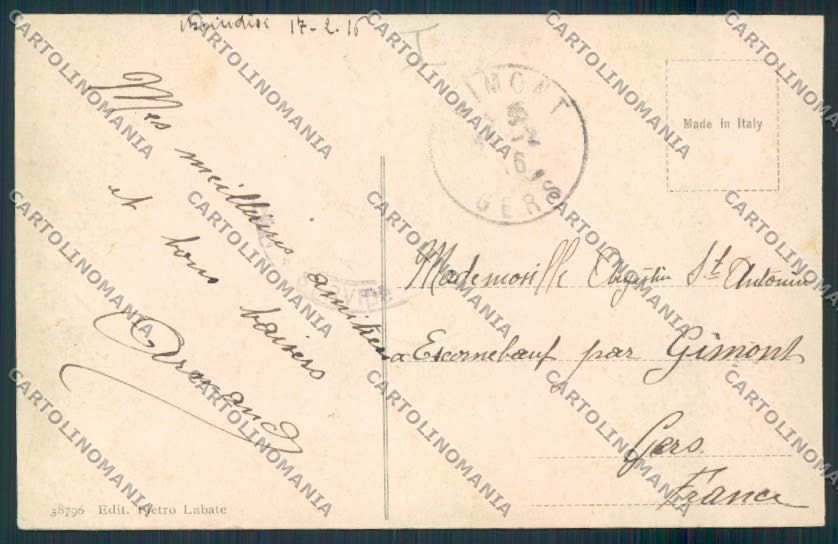 Brindisi 17-2.16
T
GIMONT
16
GERS
Made in Italy
Mes meilleures amitiés
et bons baisers
Armand
Mademoiselle Augustin St Antonin
a Escornebœuf par Gimont
Gers.
France
38796 Edit. Pietro Labate
CARTOLINOMANIA